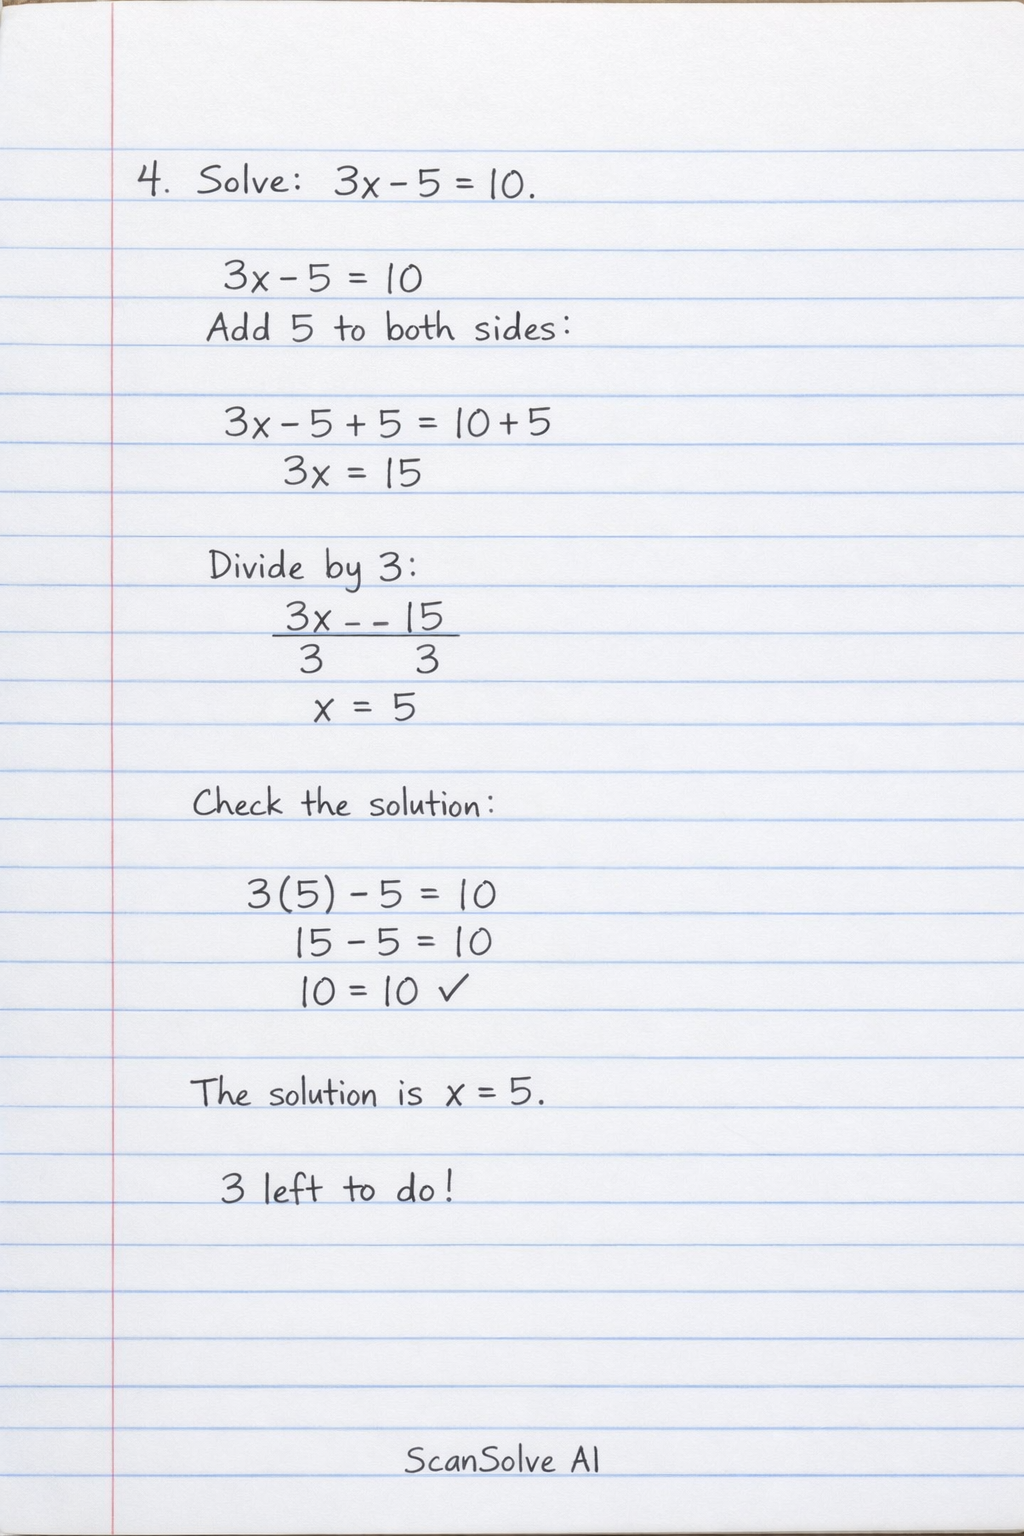 4. Solve: 3x - 5 = 10.
3x - 5 = 10
Add 5 to both sides:
3x - 5 + 5 = 10 + 5
3x = 15
Divide by 3:
3x - - 15
3 3
x = 5
Check the solution:
3(5) - 5 = 10
15 - 5 = 10
10 = 10 ✓
The solution is x = 5.
3 left to do!
ScanSolve AI